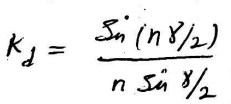 K_d = Sin (n γ/2) / n Sin γ/2